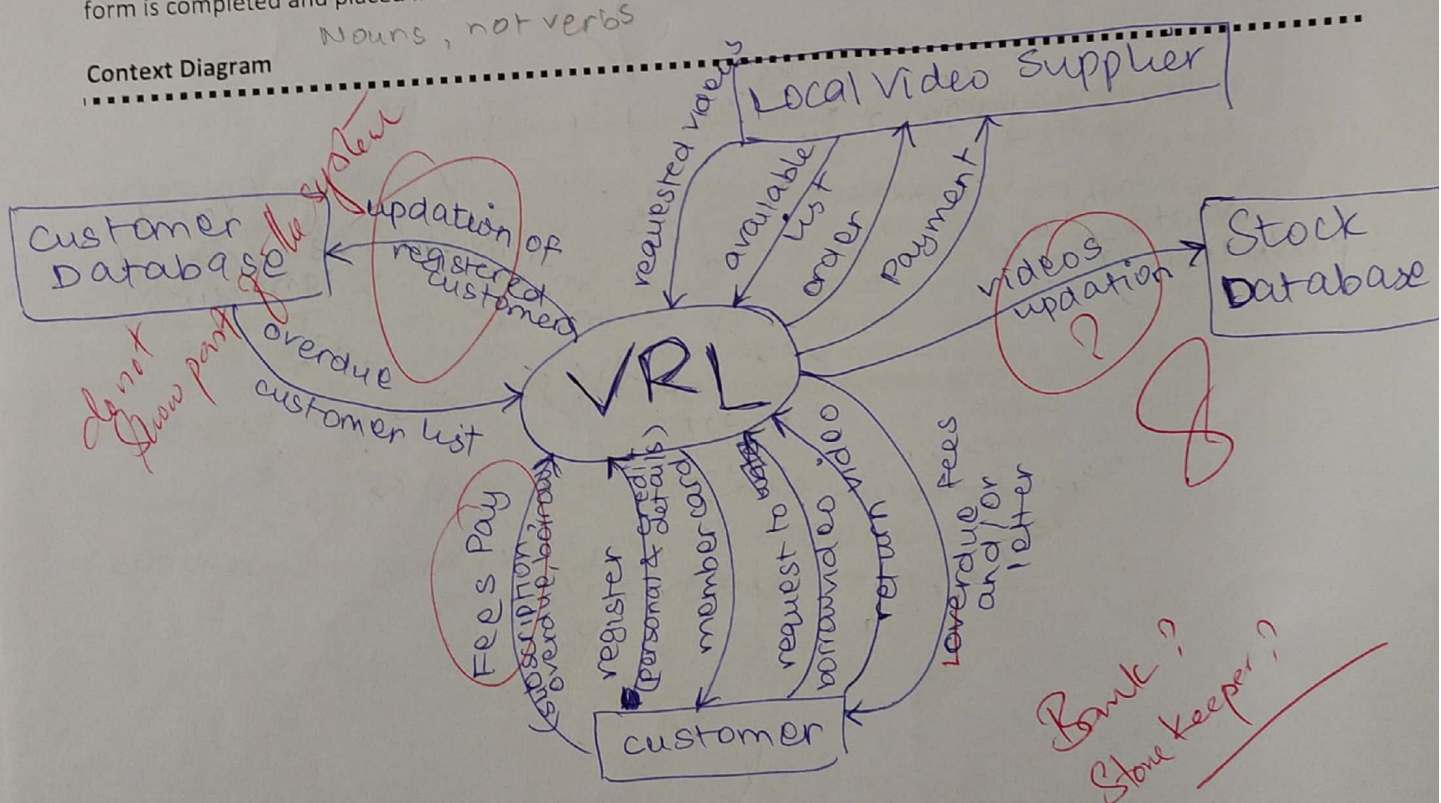 form is completed and placed
Nouns, not verbs
Context Diagram
Local Video Supplier
requested videos
available
list
order
payment
Customer
Database
updation of
registered
customers
overdue
customer list
do not
show part of the system
videos
updation
?
Stock
Database
8
VRL
Fees Pay
(subscription,
overdue, borrow
register
(personal & credit
details)
member card
request to
borrow video
return video
overdue fees
and/or
letter
customer
Bank?
Store Keeper?